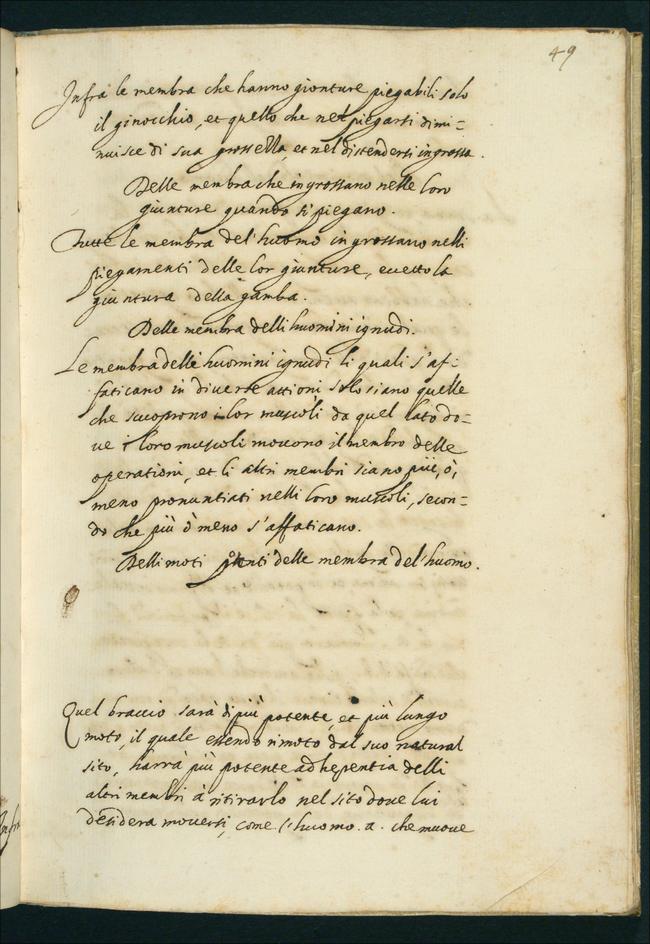 49
Infra le membra che hanno gionture piegabili solo
il ginocchio, et quello che nel piegarsi dimi=
nuisce di sua grossezza, et nel distendersi ingrossa.
Delle membra che ingrossano nelle loro
giunture quando si piegano.
Tutte le membra del'huomo ingrossano nelli
piegamenti delle lor giunture, eccetto la
giuntura della gamba.
Delle membra delli huomini ignudi.
Le membra delle huomini ignudi li quali s'af=
faticano in diverse attioni solo siano quelle
che scoprono i lor muscoli da quel lato do=
ue i loro muscoli mouono il membro delle
operationi, et li altri membri siano più, ò,
meno pronuntiati nelli loro muscoli, secon=
do che più ò meno s'affaticano.
Delli moti delle membra del'huomo.
Quel braccio sarà di più potente, et più lungo
moto, il quale essendo rimoto dal suo natural
sito, harrà più potente adherentia delli
altri membri à ritirarlo nel sito doue lui
desidera mouersi, come l'huomo .a. che muoue